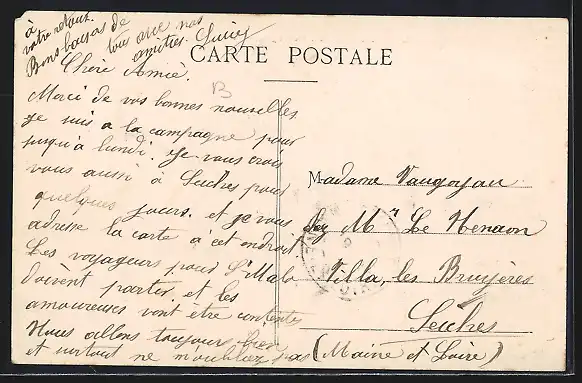 à
votre retour.
Bons baisers de
tous avec nos
amitiés. Lucie
CARTE POSTALE
Chère Amie.
B
Merci de vos bonnes nouvelles
je suis a la campagne pour
jusqu'à lundi. Je vous crois
vous aussi à Seiches pour
quelques jours. et je vous
adresse la carte à cet endroit
Les voyageurs pour St Malo
doivent partir. et les
amoureuses vont être contente
Nous allons toujours bien
et surtout ne m'oubliez pas
Madame Vaugoyau
chez Mr Le
Villa, les Bruyères
Seiches
(Maine et Loire)